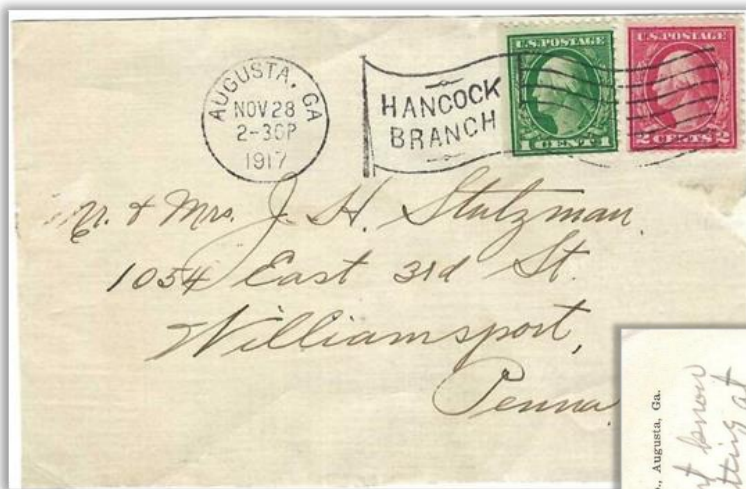 AUGUSTA, GA
NOV 28
2-30P
1917
HANCOCK
BRANCH
U.S. POSTAGE
1 CENT 1
U.S. POSTAGE
2 CENTS 2
Mr. & Mrs. J. H. Stutzman.
1054 East 3rd St.
Williamsport,
Penna.
Augusta, Ga.
know
at